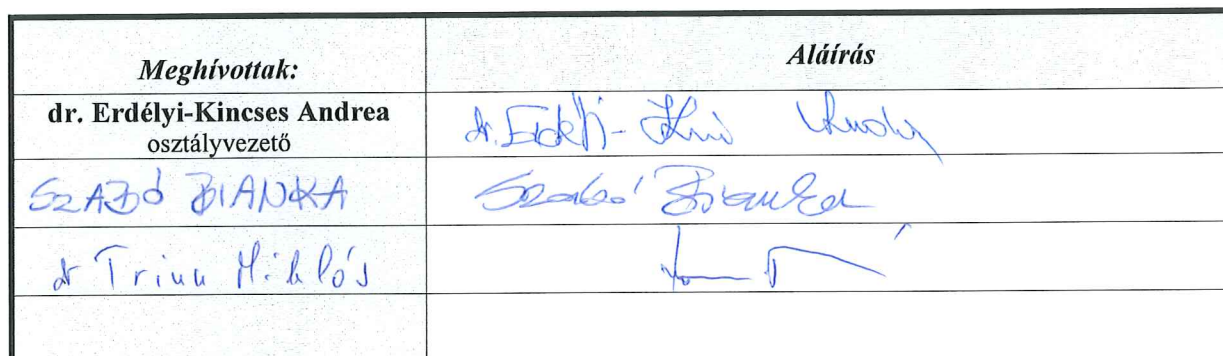 Meghívottak: Aláírás
dr. Erdélyi-Kincses Andrea
osztályvezető
dr. Erdélyi-
SZABÓ BIANKA Szabó Bianka
dr Trinn Miklós